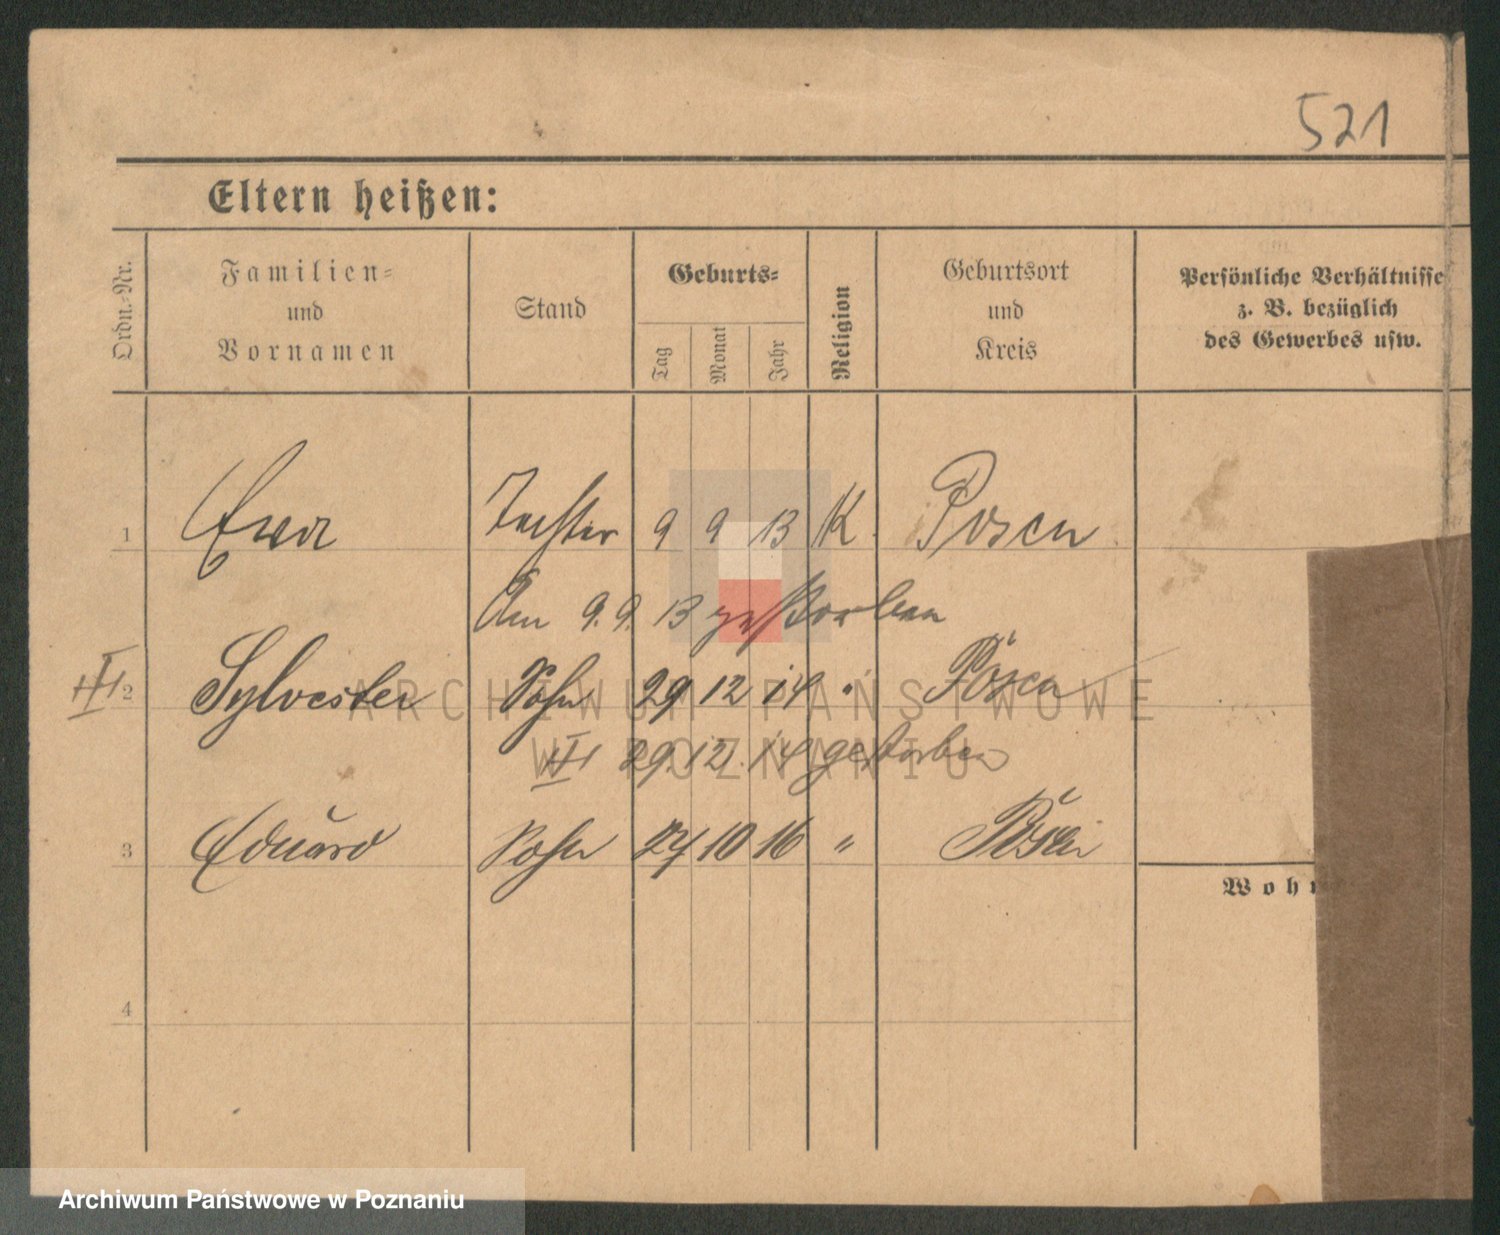 521
Eltern heißen:
Ordn.-Nr.
Familien-
und
Vornamen
Stand
Geburts-
Tag
Monat
Jahr
Religion
Geburtsort
und
Kreis
Persönliche Verhältnisse
z. B. bezüglich
des Gewerbes usw.
1 Ewa Tochter 9 9 13 K. Posen
Am 9. 9. 13 gestorben
2 Sylvester Sohn 29 12 14 " Posen
29. 12. 14 gestorben
3 Eduard Sohn 24 10 16 " Posen
Wohn
4
ARCHIWUM PAŃSTWOWE
W POZNANIU
Archiwum Państwowe w Poznaniu